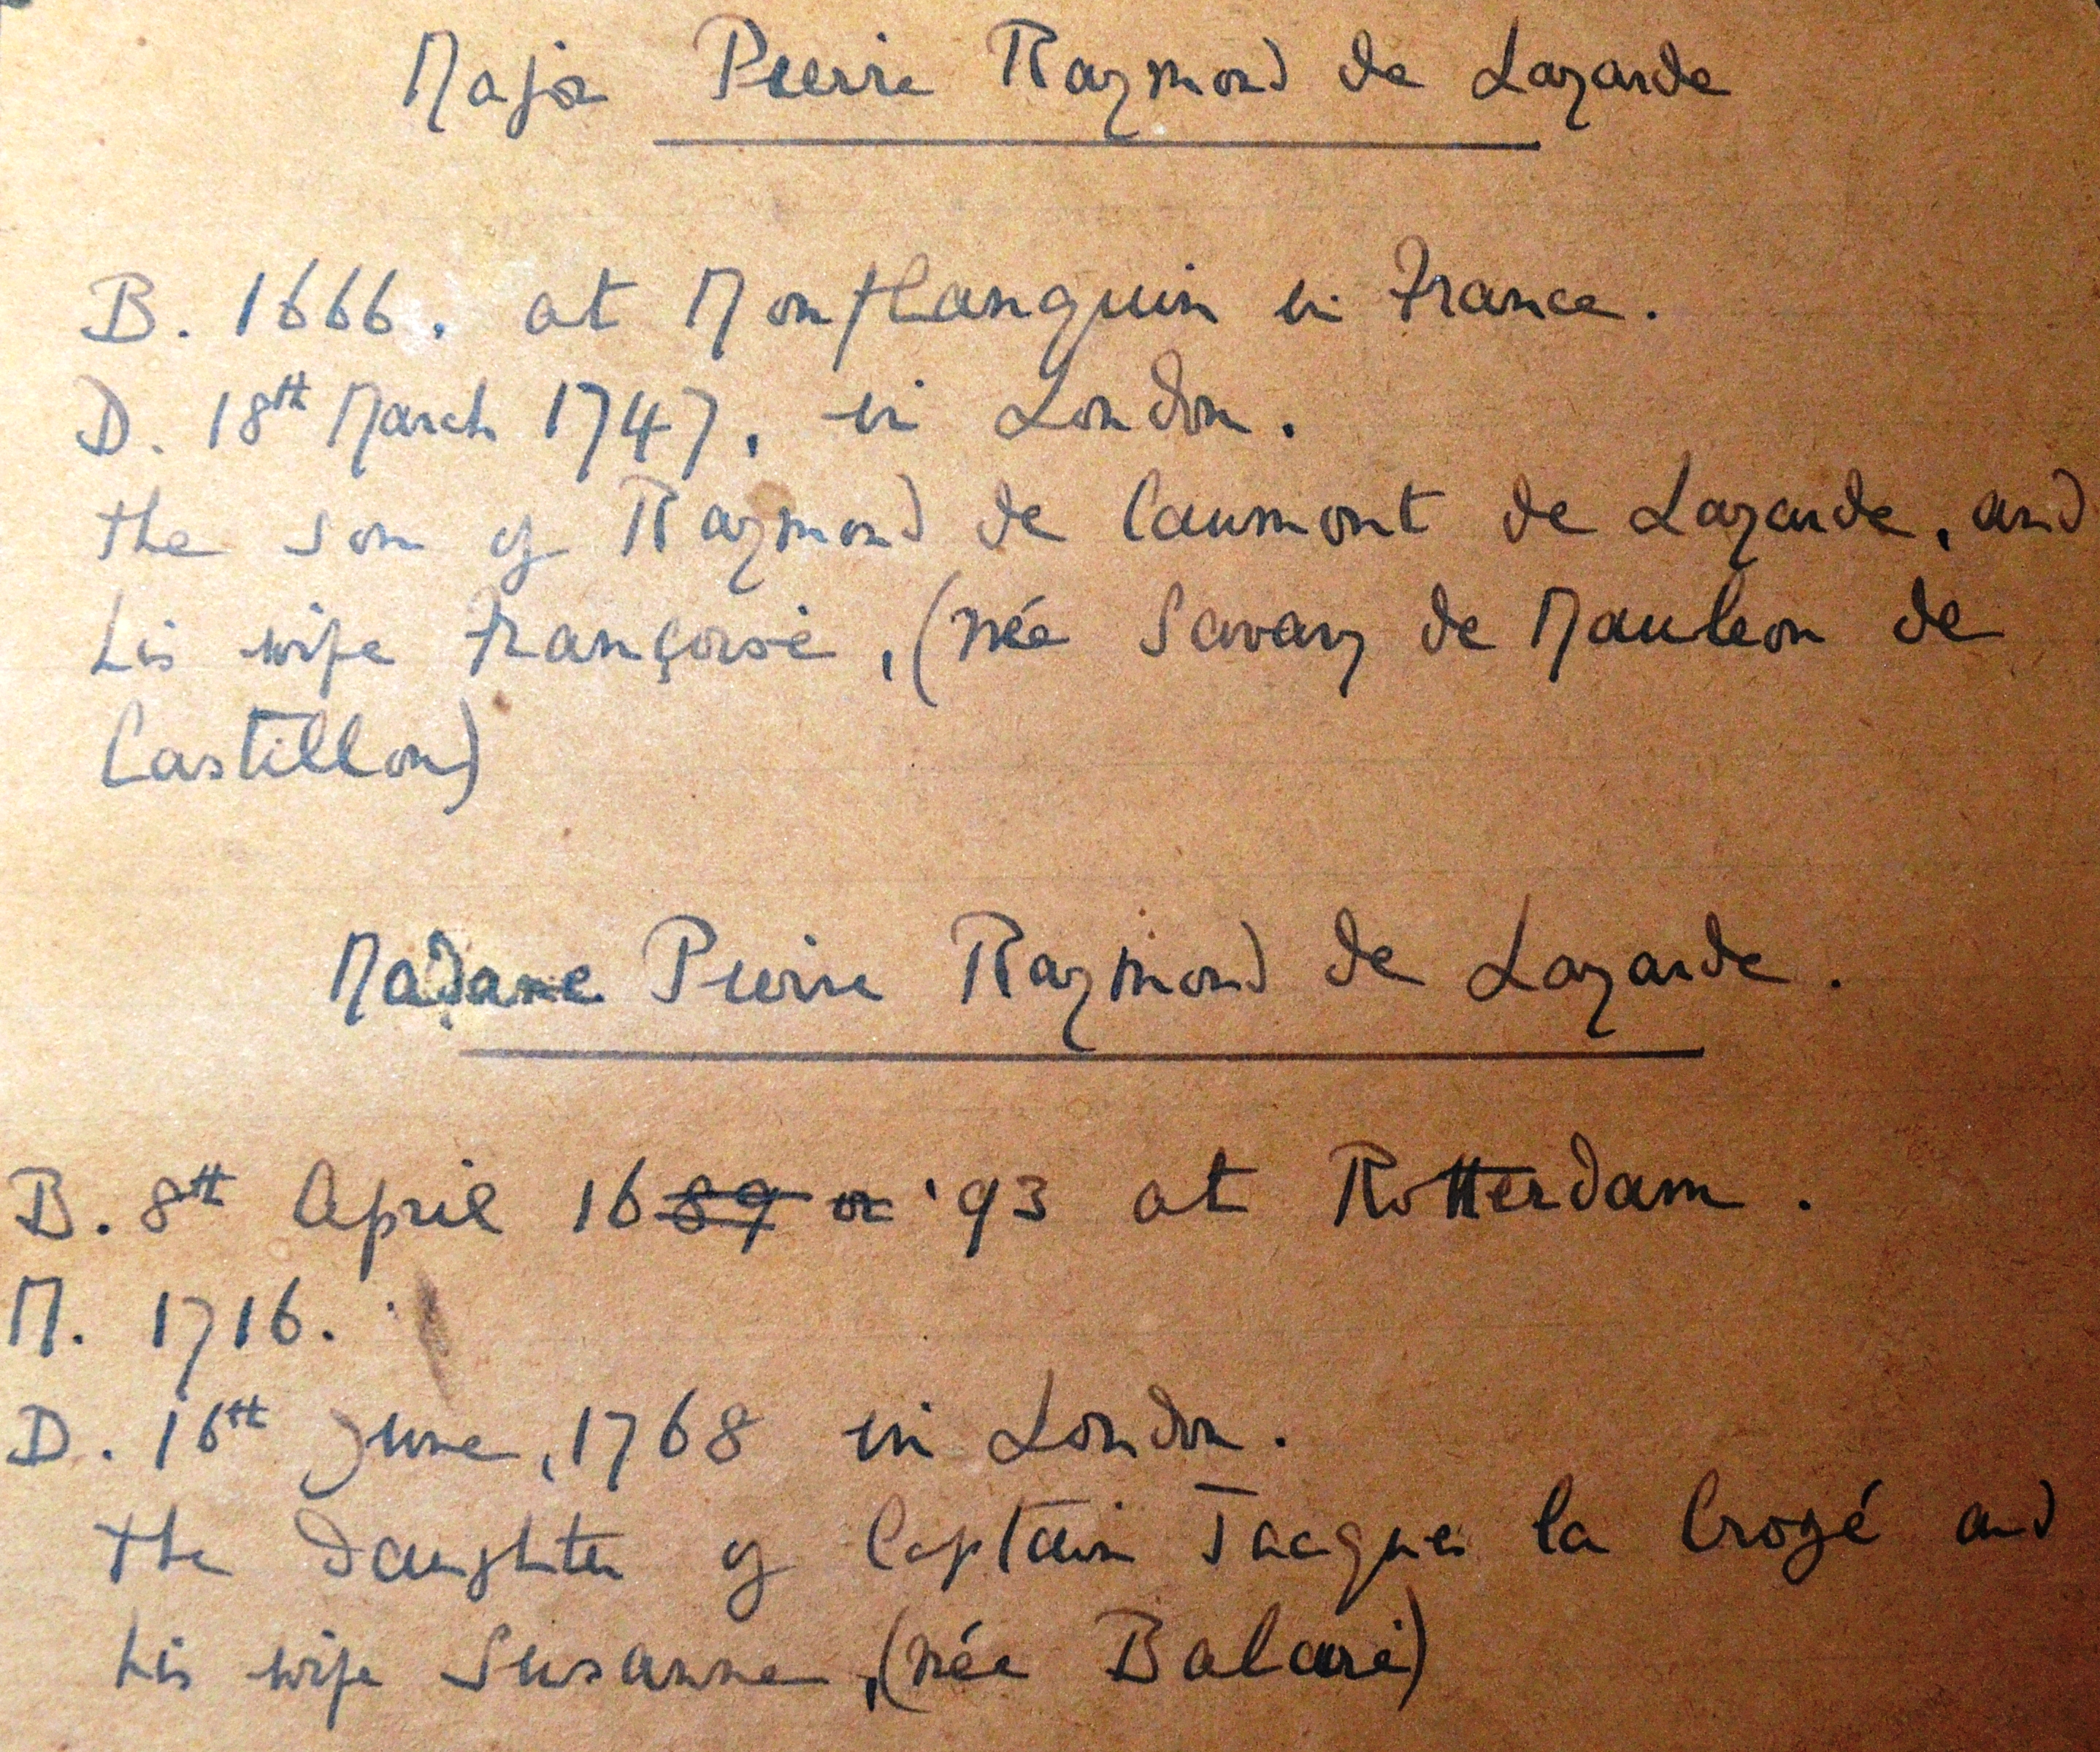 Major Pierre Raymond de Layarde
B. 1666. at Monflanquin in France.
D. 18th March 1747, in London.
the son of Raymond de Caumont de Layarde, and
his wife Françoise, (née Savary de Mauleon de
Castillon)
Madame Pierre Raymond de Layarde.
B. 8th April 1689 or '93 at Rotterdam.
M. 1716.
D. 16th June, 1768 in London.
the daughter of Captain Jacques la Crozé and
his wife Susanne, (née Balaré)